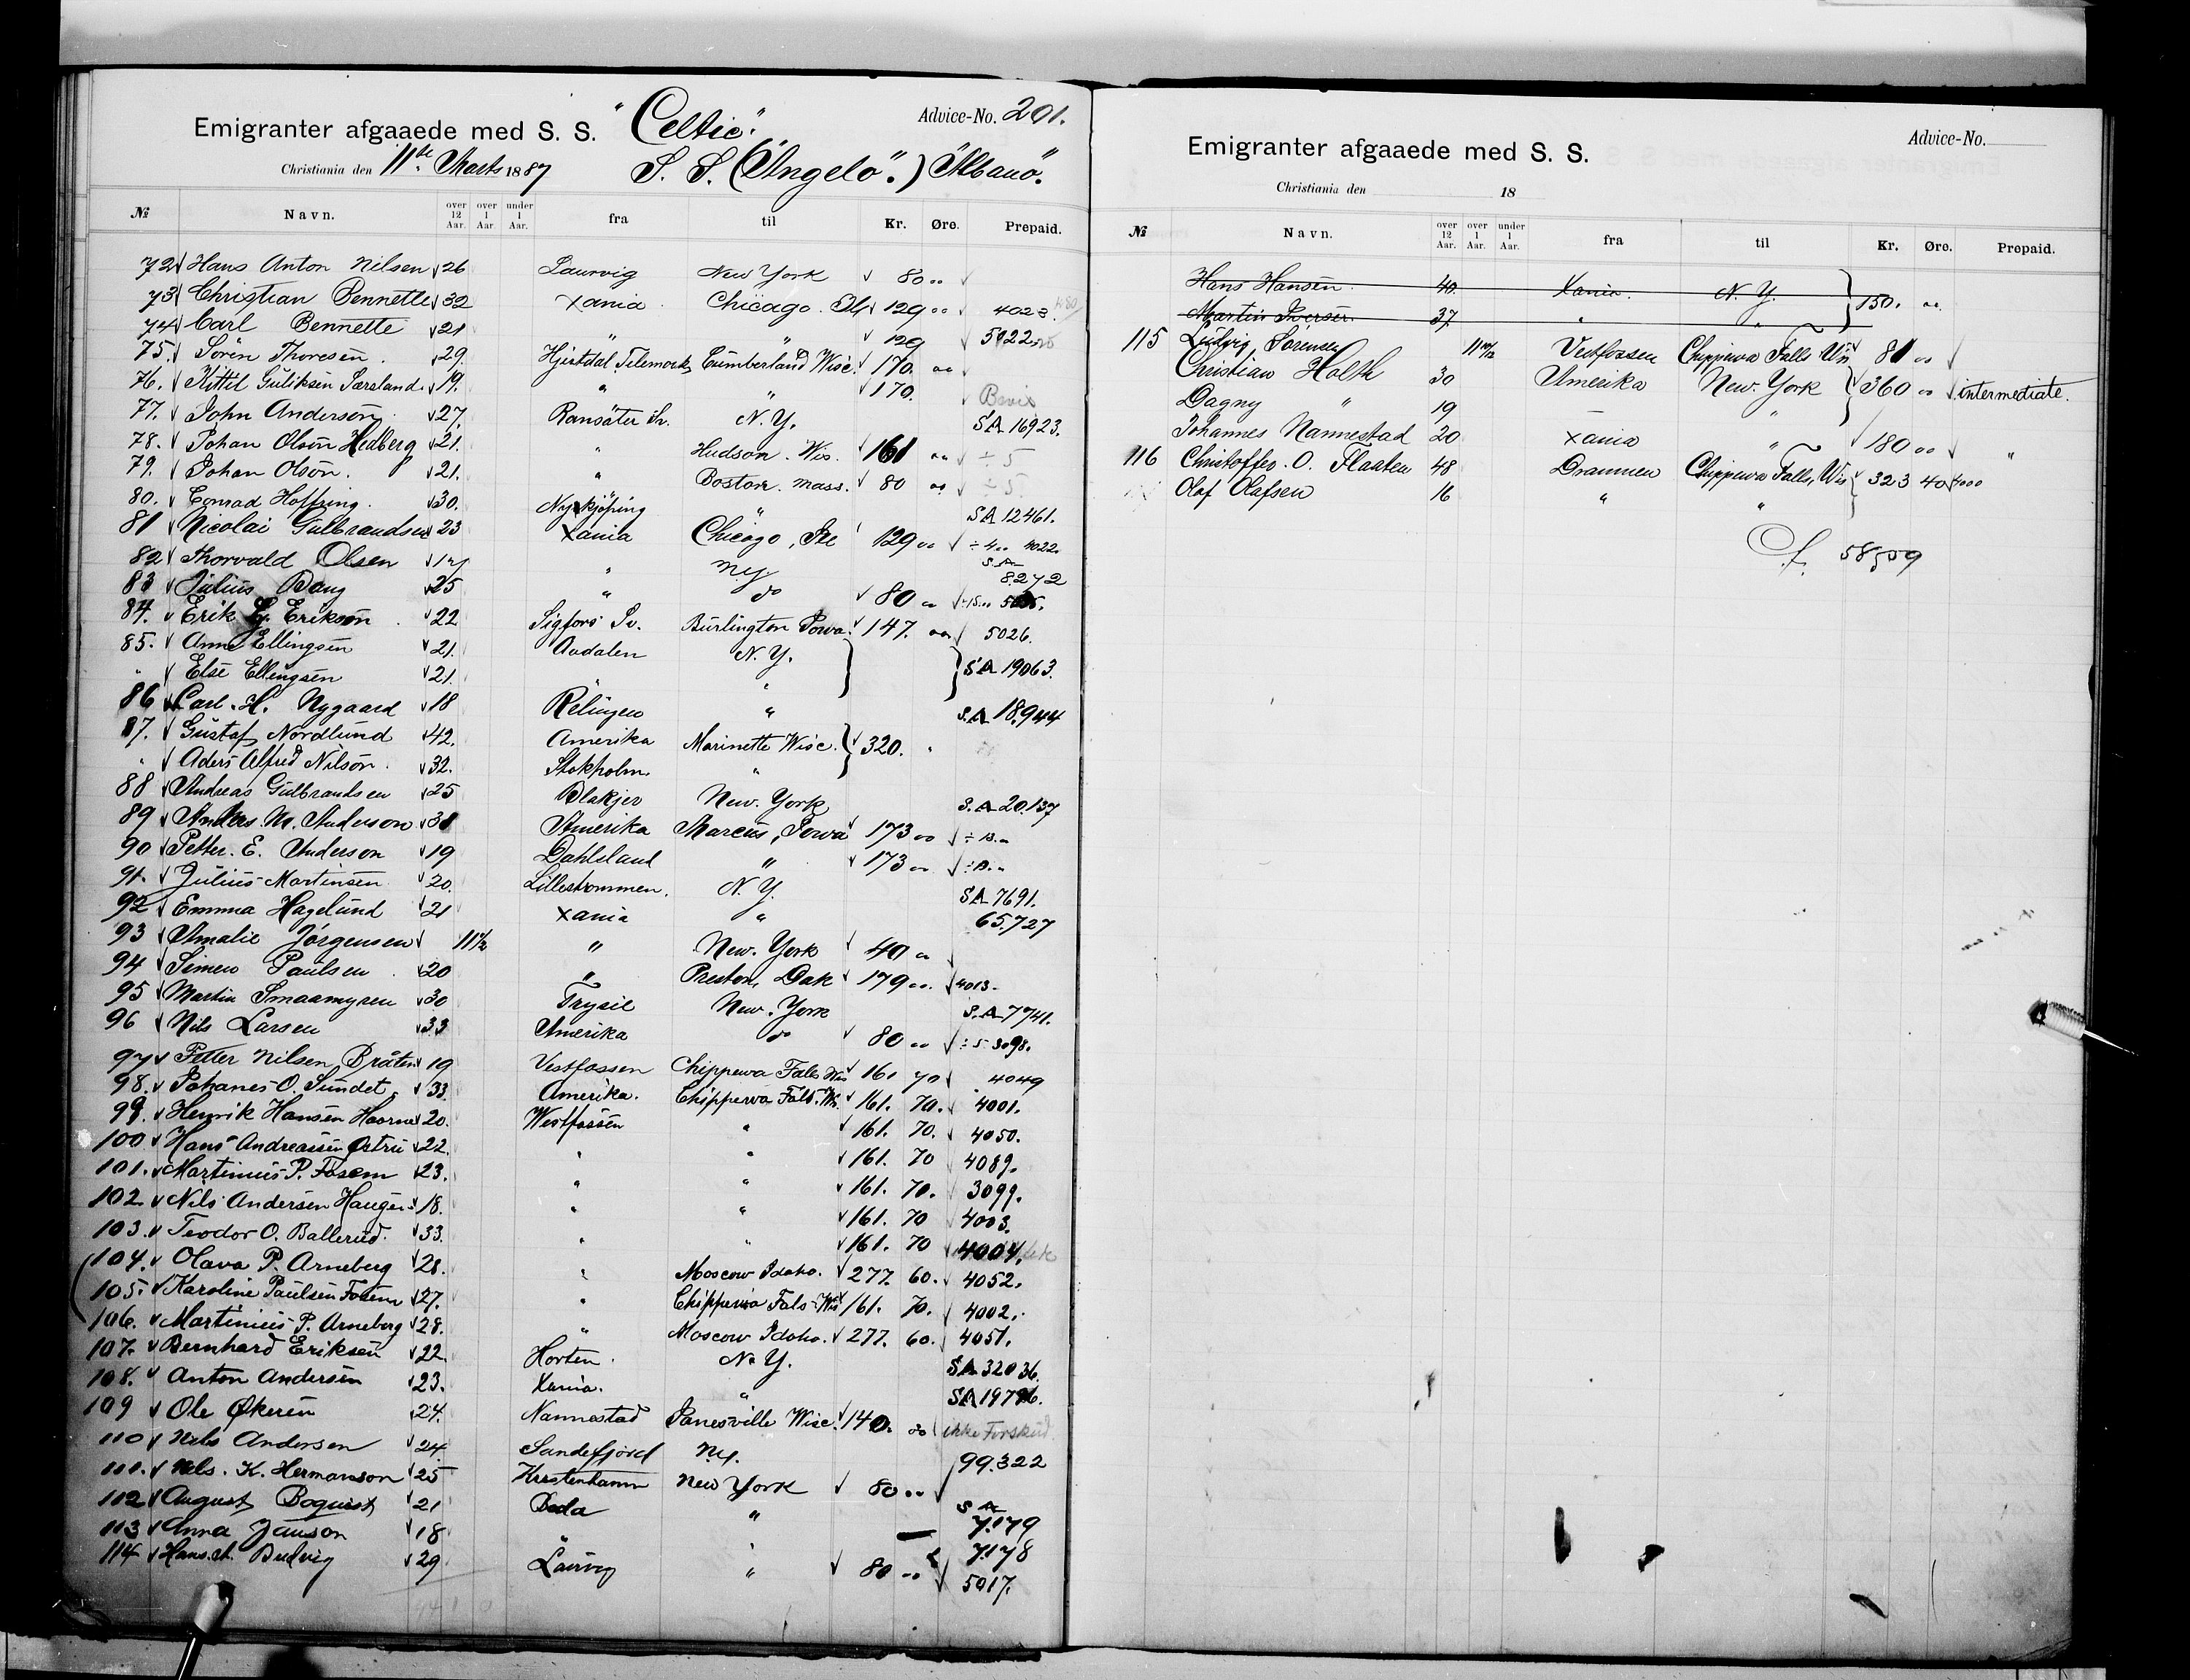 Emigranter afgaaede med S. S. "Celtic". Advice-No. 201.
Christiania den 11te Marts 1887 S. S. ("Angelo".) "Albano".
№ Navn. over 12 Aar. over 1 Aar. under 1 Aar. fra til Kr. Øre. Prepaid.
72 Hans Anton Nilsen 26 Laurvig New York 80 "
73 Christian Bennette 32 Xania Chicago. Ills 129 " 4023
74 Carl Bennette 21 " " 129 5022
75. Sören Thoresen. 29. Hjertdal Telemark Cumberland Wisc. 170. "
76. Kittil Guliksen Særsland 19. " " 170. Bevis
77. John Andersen 27. Ransäter N. Y. SA 16923.
78. Johan Olson Hedberg 21. " Hudson. Wis. 161 " ÷ 5
79. Johan Olson. 21. " Boston. Mass. 80 " ÷ 5.
80. Conrad Hoffring. 30. Nykjöping " SA 12461.
81 Nicolai Gulbrandsen 23 Xania Chicago, Ill 129 " ÷ 4 " 4022
82 Thorvald Olsen 17 " N.Y. S.A 8272
83 Julius Bang 25 " do 80 " ÷15 "
84. Erik G. Erikson 22 Sigfors Sv. Burlington Iowa. 147. " 5026.
85. Anne Ellingsen 21. Aadalen N. Y. SA 19063.
" Else Ellingsen 21. "
86 Carl. H. Nygaard 18 Relingen " S.A 18,944
87. Gustaf Nordlund 42. Amerika Marinette Wisc. 320. "
" Aders Alfred Nilson. 32. Stokholm. "
88 Andreas Gulbrandsen 25 Blakjer New. York S.A 20.137
89 Anders. M. Anderson 31 Amerika Marcus, Iowa 173 "
90 Petter. E. Anderson 19 Dahlsland " 173 "
91. Julius Martinsen 20. Lillestrommen. N. Y. SA 7691.
92 Emma Hagelund 21 Xania " 65.727
93 Amalie Jørgensen 11 " New. York 40 "
94 Simen Paulsen 20 " Preston, Dak 179 " 4013
95 Martin Smaamyren 30 Trysil New. York S.A 7741.
96 Nils Larsen 33 Amerika do 80 " ÷ 5 3098.
97 Petter Nilsen Bråten 19 Vestfossen Chippewa Falls Wis 161 70 4049
98. Johanes O. Sundet. 33. Amerika. Chippewa Fals. Wis. 161. 70. 4001.
99. Henrik Hansen Hoorne 20. Westfossen " 161. 70. 4050.
100 Hans Andreassen Østru 22. " " 161. 70 4089.
101. Martinius P. Fosem 23. " " 161. 70. 3099.
102. Nils Andersen Haugen 18. " " 161. 70 4003.
103. Teodor O. Ballerud. 33. " " 161. 70 4004.
104. Olava P. Arneberg 28. " Moscow Idaho. 277. 60. 4052.
105. Karoline Paulsen Fosem 27. " Chippewa Fals Wis 161. 70. 4002.
106. Martinius P. Arneberg 28. " Moscow Idaho. 277. 60. 4051.
107. Bernhard Eriksen 22. Horten. N. Y. SA 32036.
108. Anton Andersen 23. Xania. " SA 19796.
109 Ole Økeren 24. Nannestad Janesville Wisc. 140. " ikke Forskud.
110 Nils Andersen 24. Sandefjord N.Y. 99.322
111. Nils. K. Hermanson 25 Kristenhamn New York 80 "
112 August Boquist 21 Deda " S A 7.179
113 Anna Janson 18 " " 7.178
114 Hans. A. Ludvig 29 Laurvig " 80 " 5017.
Emigranter afgaaede med S. S. Advice-No.
Christiania den 18
№ Navn. over 12 Aar. over 1 Aar. under 1 Aar. fra til Kr. Øre. Prepaid.
Hans Hansen. 40. Xania. N. Y. 150. "
Martin Iversen. 37. " "
115 Ludvig Sørensen 11 10/12 Vestfossen Chippewa Falls Wis 81 "
Christian Holth 30 Amerika New. York 360 " intermediate.
Dagny " 19 "
Johannes Nannestad 20 Xania " 180 " "
116 Christoffer. O. Flaaten 48 Drammen Chippewa Falls, Wis 323 40 4000
Olaf Olafsen 16 " "
58,509